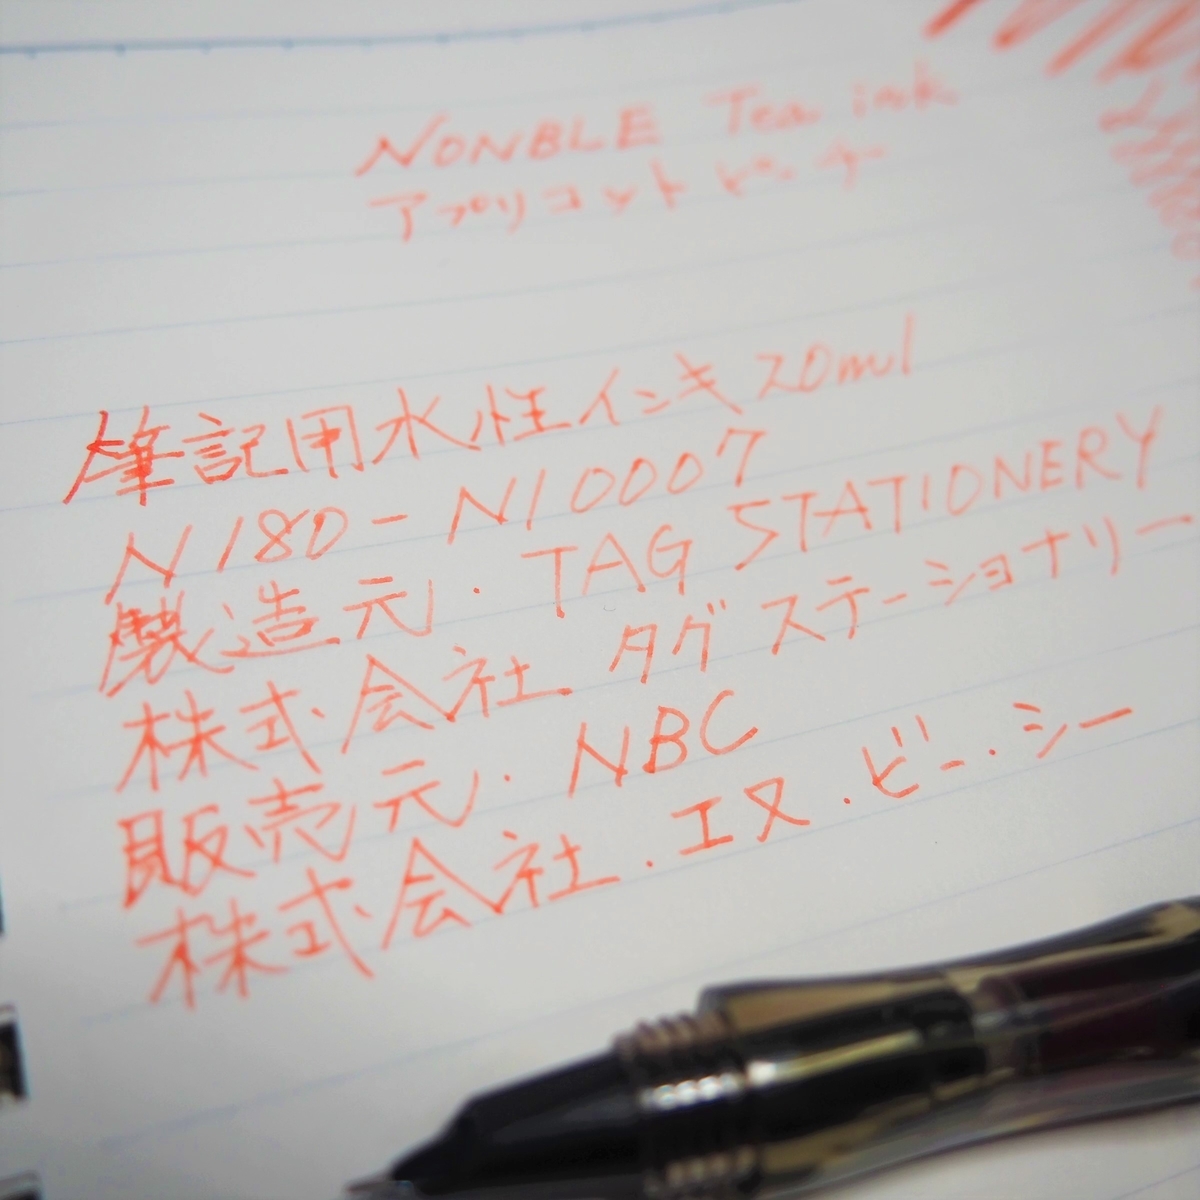 NONBLE Tea ink
アプリコットピーチ
筆記用水性インキ 20ml
N180-N10007
製造元. TAG STATIONERY
株式会社 タグステーショナリー
販売元. NBC
株式会社.エヌ.ビー.シー